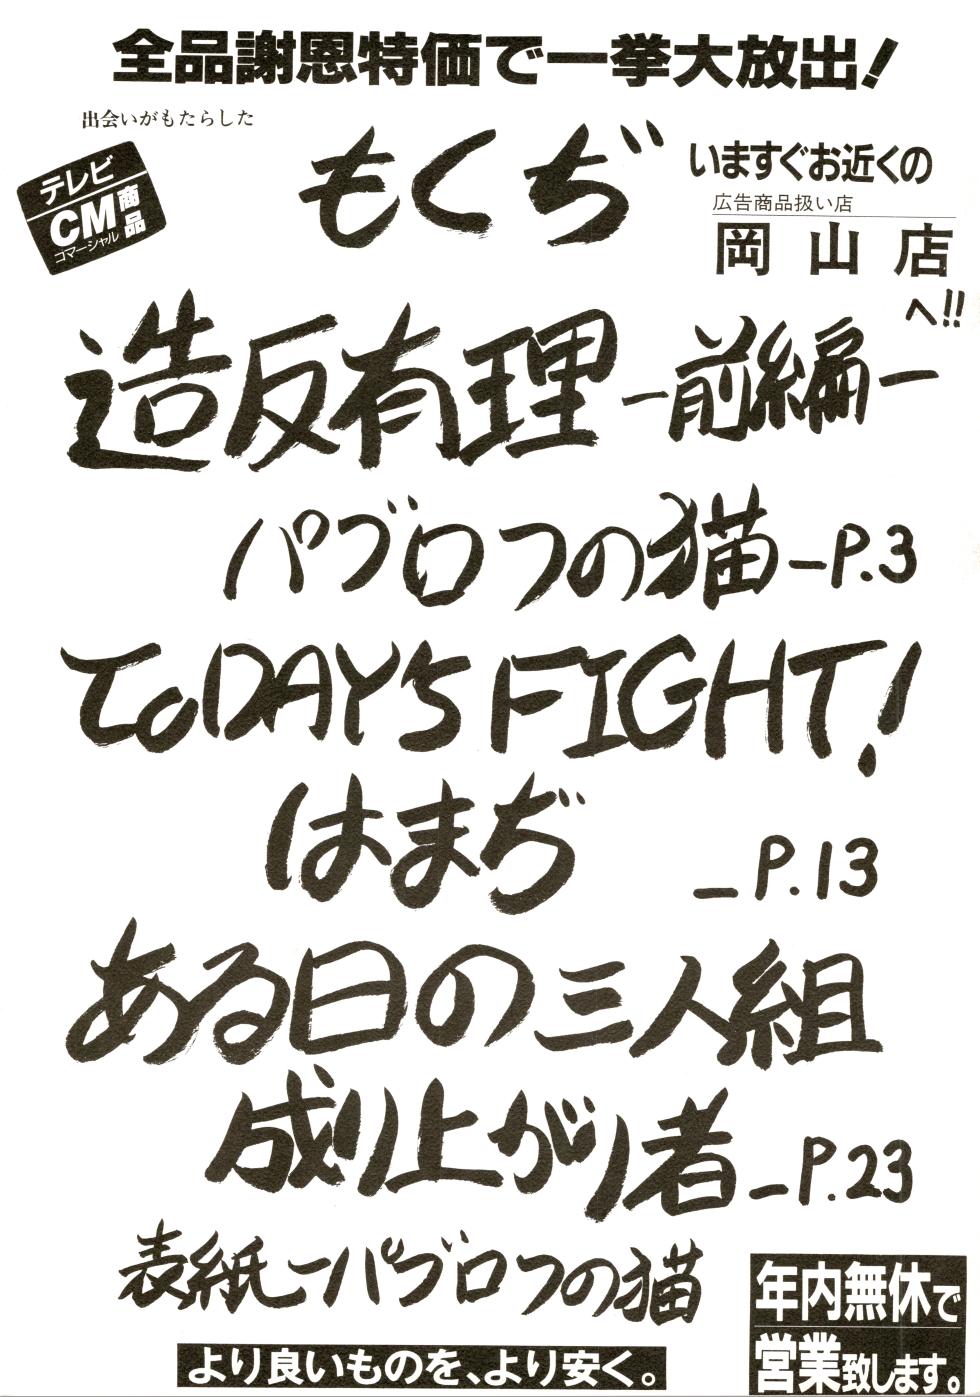 全品謝恩特価で一挙大放出!
出会いがもたらした
もくぢ
テレビ
CM商品
コマーシャル
いますぐお近くの
広告商品扱い店
岡山店
へ!!
造反有理ー前編ー
パブロフの猫ーP.3
ToDAY'S FIGHT!
はまぢ ーP.13
ある日の三人組
成り上がり者ーP.23
表紙ーパブロフの猫
年内無休で
営業致します。
より良いものを、より安く。